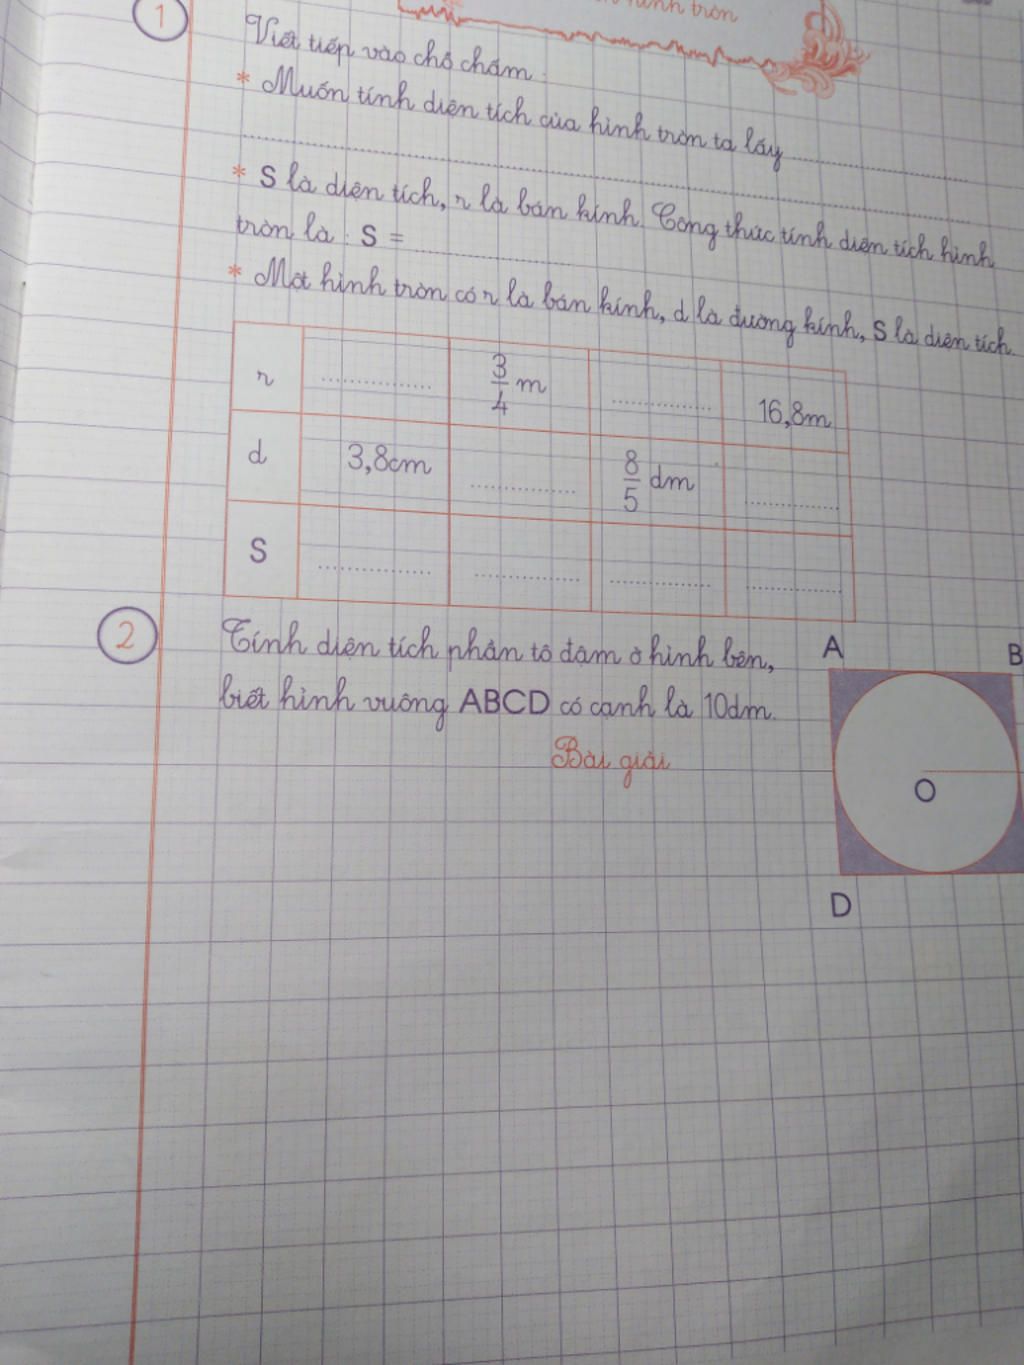 hình tròn
1
Viết tiếp vào chỗ chấm :
* Muốn tính diện tích của hình tròn ta lấy ....................
....................
* S là diện tích, r là bán kính. Công thức tính diện tích hình
tròn là : S = ....................
* Một hình tròn có r là bán kính, d là đường kính, S là diện tích.
r ............ 3/4 m ............ 16,8m
d 3,8cm ............ 8/5 dm ............
S ............ ............ ............ ............
2
Tính diện tích phần tô đậm ở hình bên,
biết hình vuông ABCD có cạnh là 10dm.
Bài giải
A B
O
D